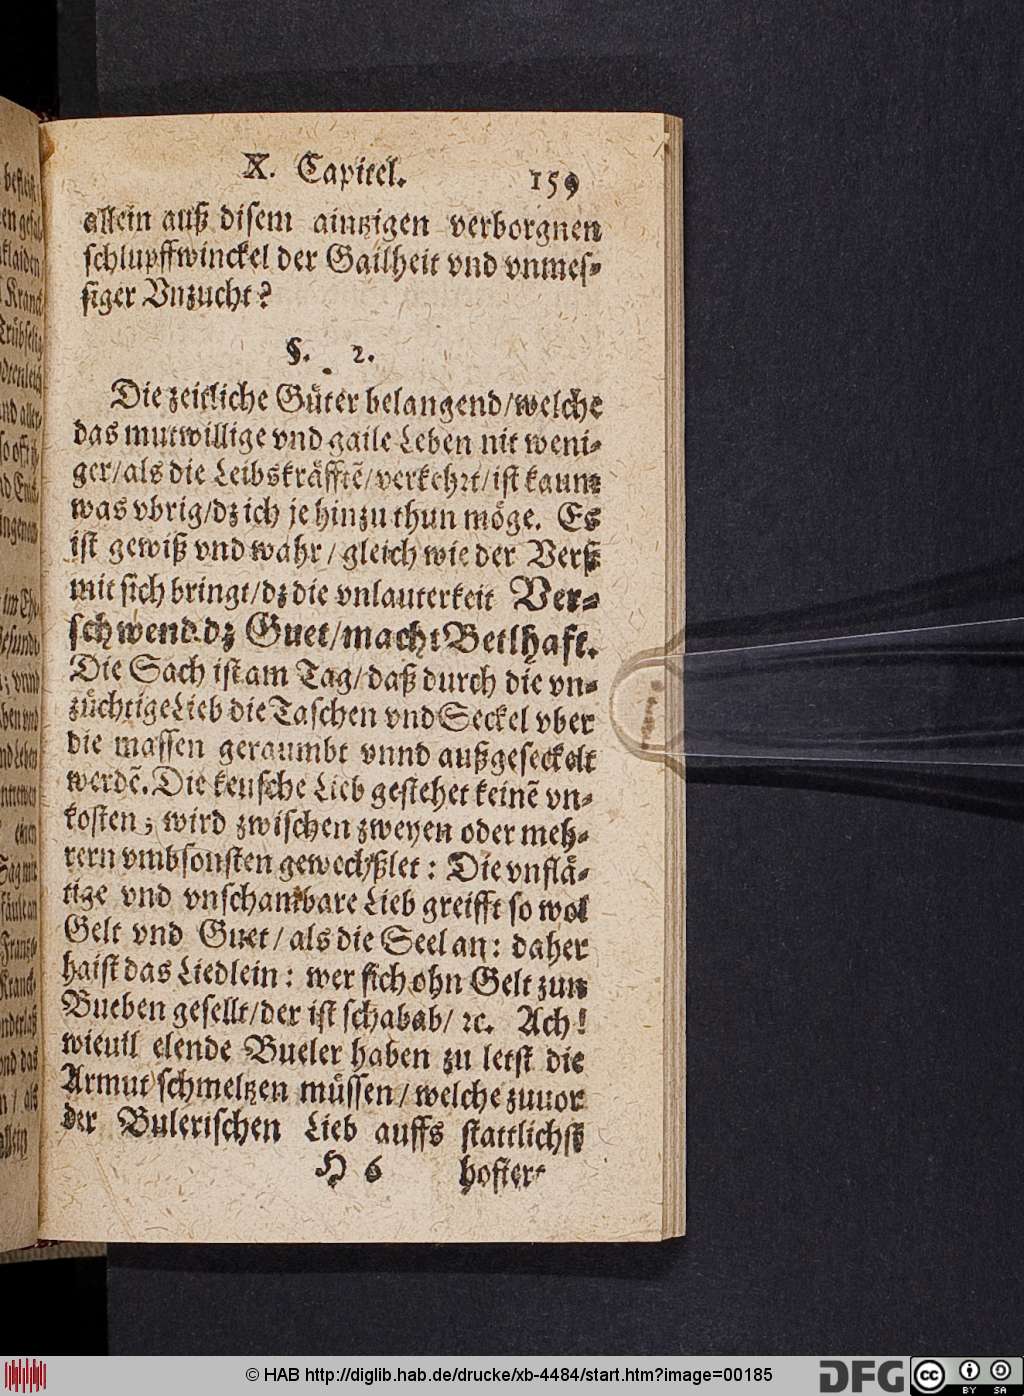 X. Capitel. 159
allein auß disem aintzigen verborgnen
schlupffwinckel der Gailheit vnd vnmes-
siger Vnzucht?
§. 2.
Die zeitliche Güter belangend/welche
das mutwillige vnd gaile Leben nit weni-
ger/als die Leibskräfftẽ/verkehrt/ist kaum
was vbrig/dz ich je hinzu thun möge. Es
ist gewiß vnd wahr/gleich wie der Verß
mit sich bringt/dz die vnlauterkeit Ver-
schwend dz Guet/macht Betlhafft.
Die Sach ist am Tag/daß durch die vn-
züchtige Lieb die Taschen vnd Seckel vber
die massen geraumbt vnnd außgeseckelt
werdẽ. Die keusche Lieb gestehet keinẽ vn-
kosten, wird zwischen zweyen oder meh-
rern vmbsonsten gewechßlet: Die vnflä-
tige vnd vnschambare Lieb greifft so wol
Gelt vnd Guet/als die Seel an: daher
haist das Liedlein: wer sich ohn Gelt zun
Bueben gesellt/der ist schabab/ ꝛc. Ach!
wieuil elende Bueler haben zu letst die
Armut schmeltzen müssen/welche zuuor
der Bulerischen Lieb auffs stattlichst
H 6 hofiert
befleiß
Kranck
vnd das
allein
© HAB http://diglib.hab.de/drucke/xb-4484/start.htm?image=00185
DFG
cc BY SA